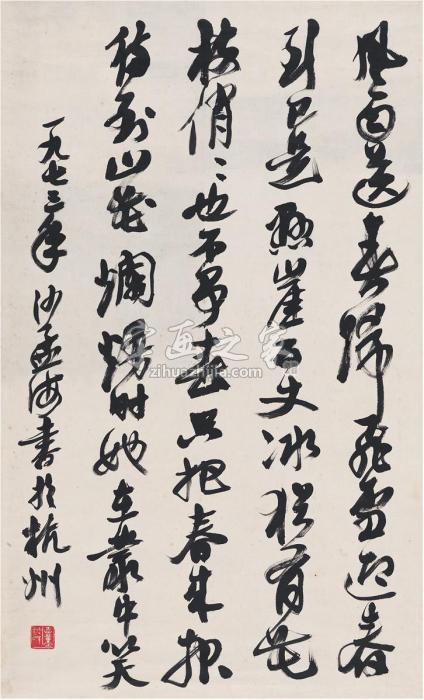 风雨送春归飞雪迎春
到已是悬崖百丈冰犹有花
枝俏〻也不争春只把春来报
待到山花烂熳时她在丛中笑
一九七三年沙孟海书于杭州
字画之家
zihuazhijia.com